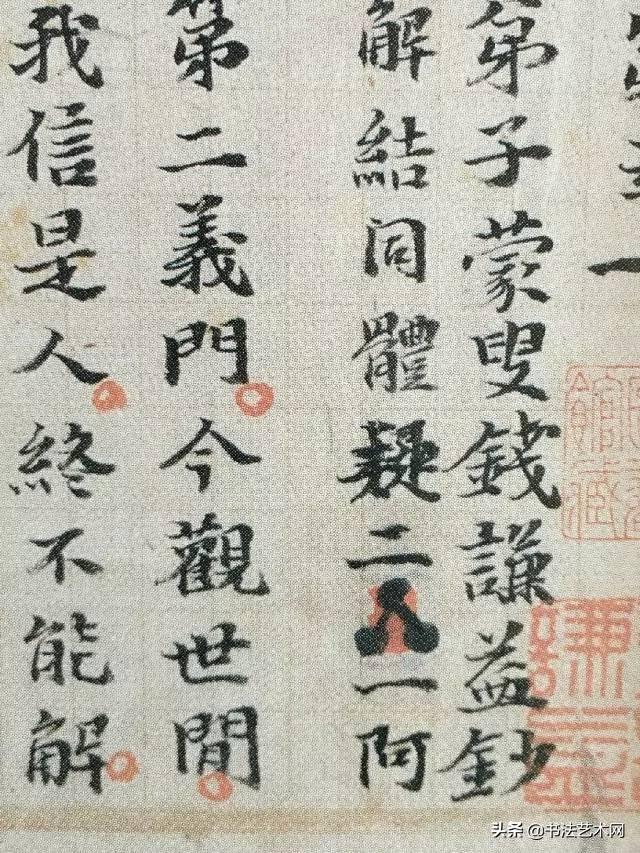 一
弟子蒙叟錢謙益鈔
解結同體疑二一阿
第二義門今觀世間
我信是人終不能解
头条 @书法艺术网